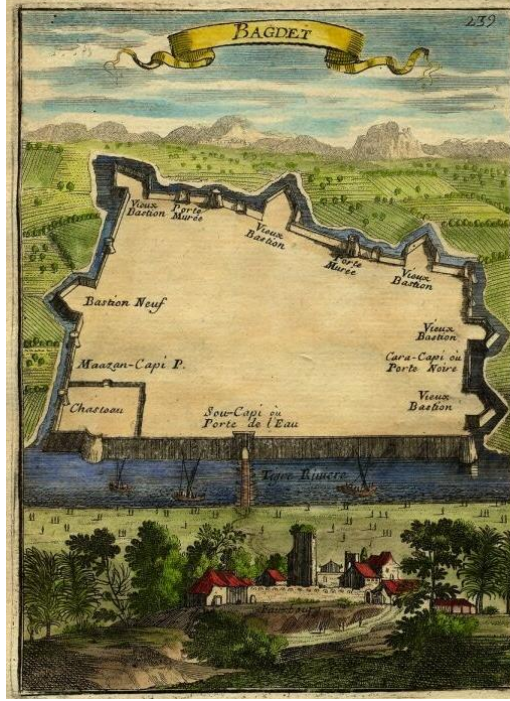 BAGDET
239
Vieux
Bastion
Porte
Murée
Vieux
Bastion
Porte
Murée
Vieux
Bastion
Bastion Neuf
Vieux
Bastion
Maazan-Capi P.
Cara-Capi ou
Porte Noire
Chasteau
Sou-Capi ou
Porte de l'Eau
Vieux
Bastion
Tigre Riviere
Fauxbourg